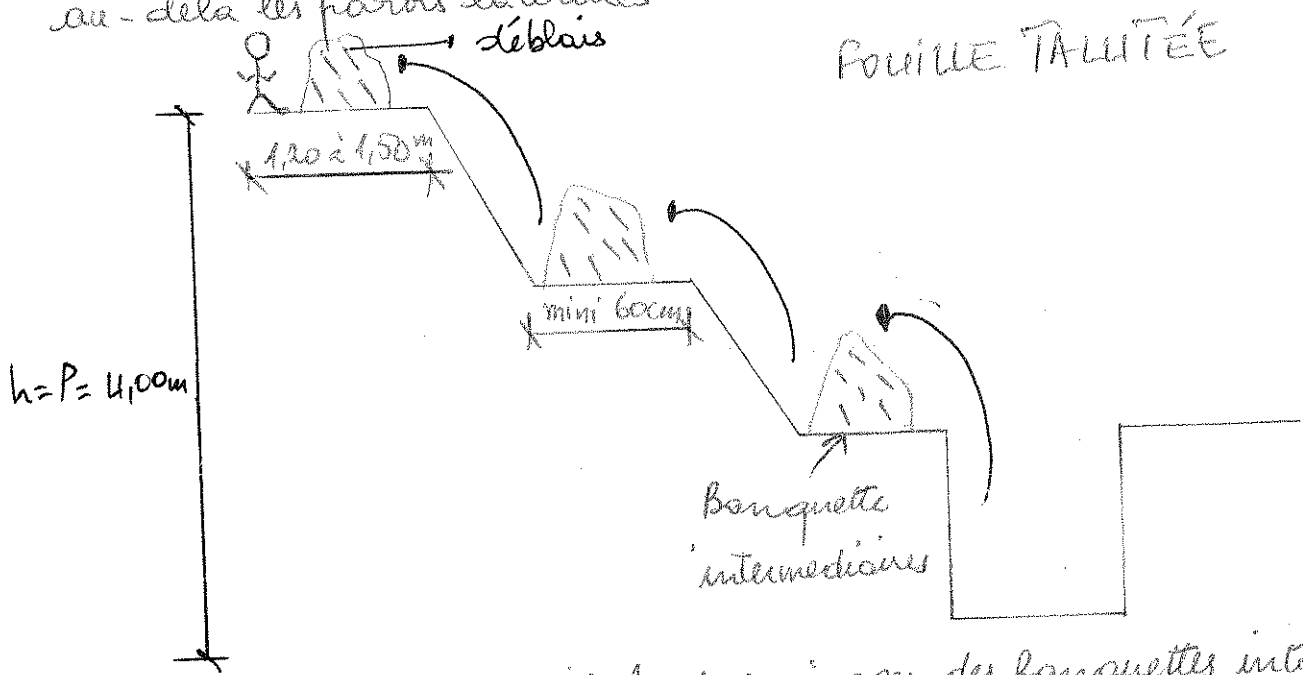 au-delà les parois
déblais
FOUILLE TALUTÉE
1,20 à 1,50 m
mini 60cm
h=P= 4,00m
Banquette
intermédiaires
des banquettes inte